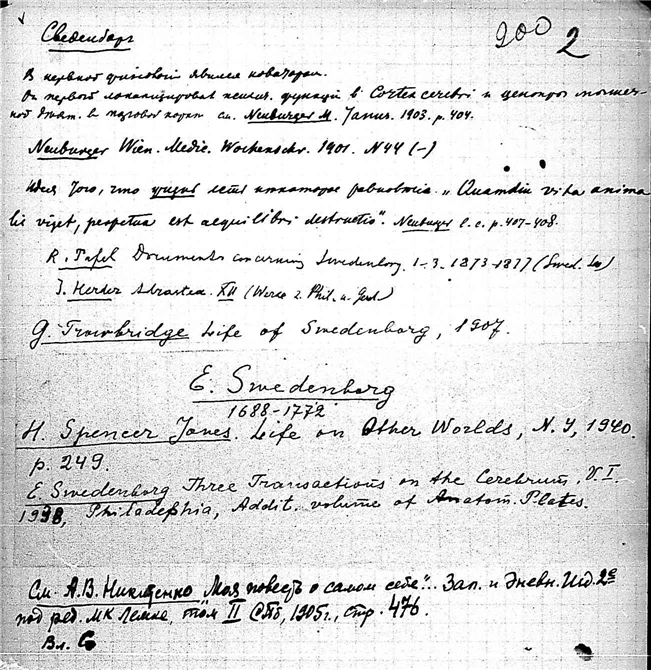 200 2
Сведенборг
В нервной физиологии явился новатором.
Он первый локализировал психич. функций в Cortex cerebri и центров
в мозговой коре см. Neuburger M. Janus. 1903. p. 404.
Neuburger Wien. Medic. Wochenschr. 1901. N44 (-)
Идея того, что есть некоторое равновесие. „Quamdiu vita anima
lis viget, perpetua est aequilibri destructio". Neuburger l. c. p. 407-408.
R. Tafel Documents concerning Swedenborg. 1-3. 1873-1877 (Swed.
J. Herder Adrastea. XII (Werke z. Phil. u.
G. Trowbridge Life of Swedenborg, 1907.
E. Swedenborg
1688-1772
H. Spencer Jones. Life on Other Worlds, N. Y, 1940.
p. 249.
E. Swedenborg Three Transactions on the Cerebrum, V. I.
1938, Philadephia, Addit. volume of Anatom. Plates.
См. А.В. Никитенко „Моя повесть о самом себе". Зап. и Дневн. Изд. 2е
под ред. МК Лемке, том II СПб, 1905г., стр. 476.
Вл. С